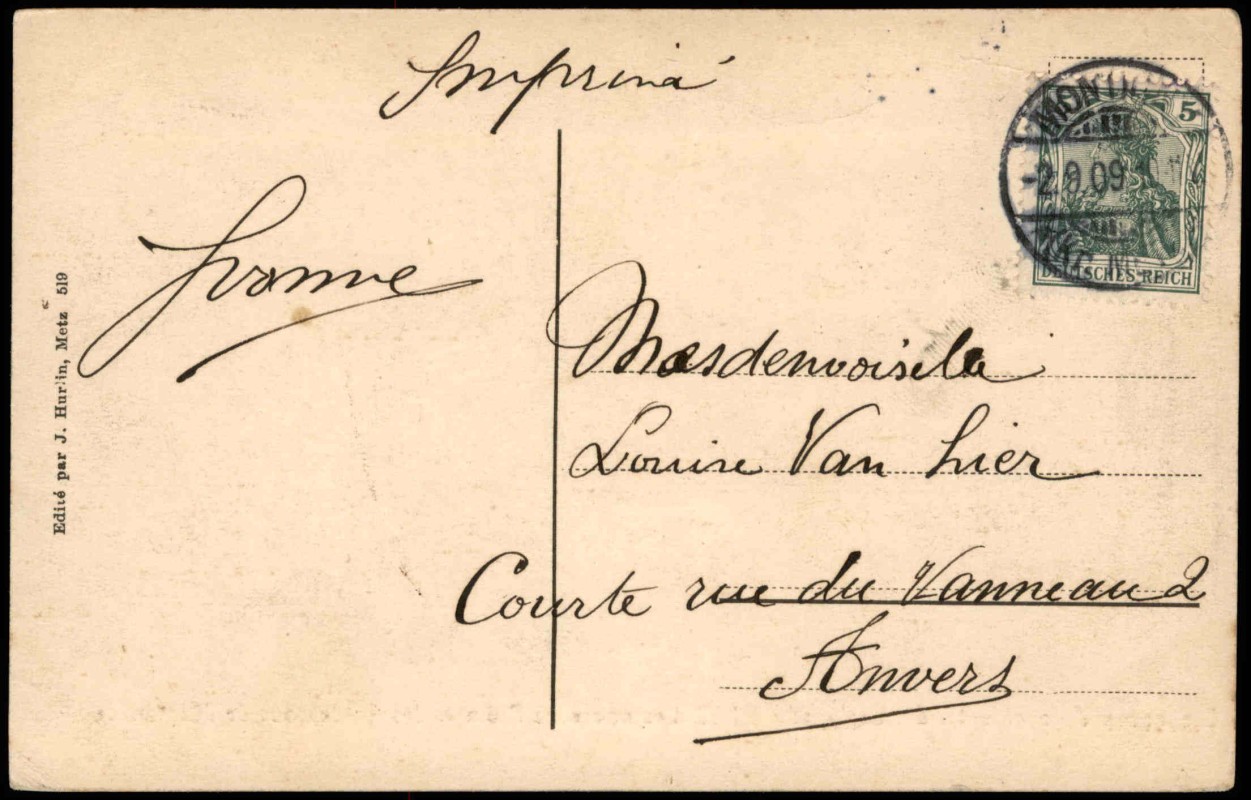 Imprimé
5
MONTIG
-2.9.09
DEUTSCHES REICH
Yvonne
Edité par J. Hurlin, Metz 519
Mesdemoiselle
Louise Van Lier
Courte rue du Vanneau 2
Anvers